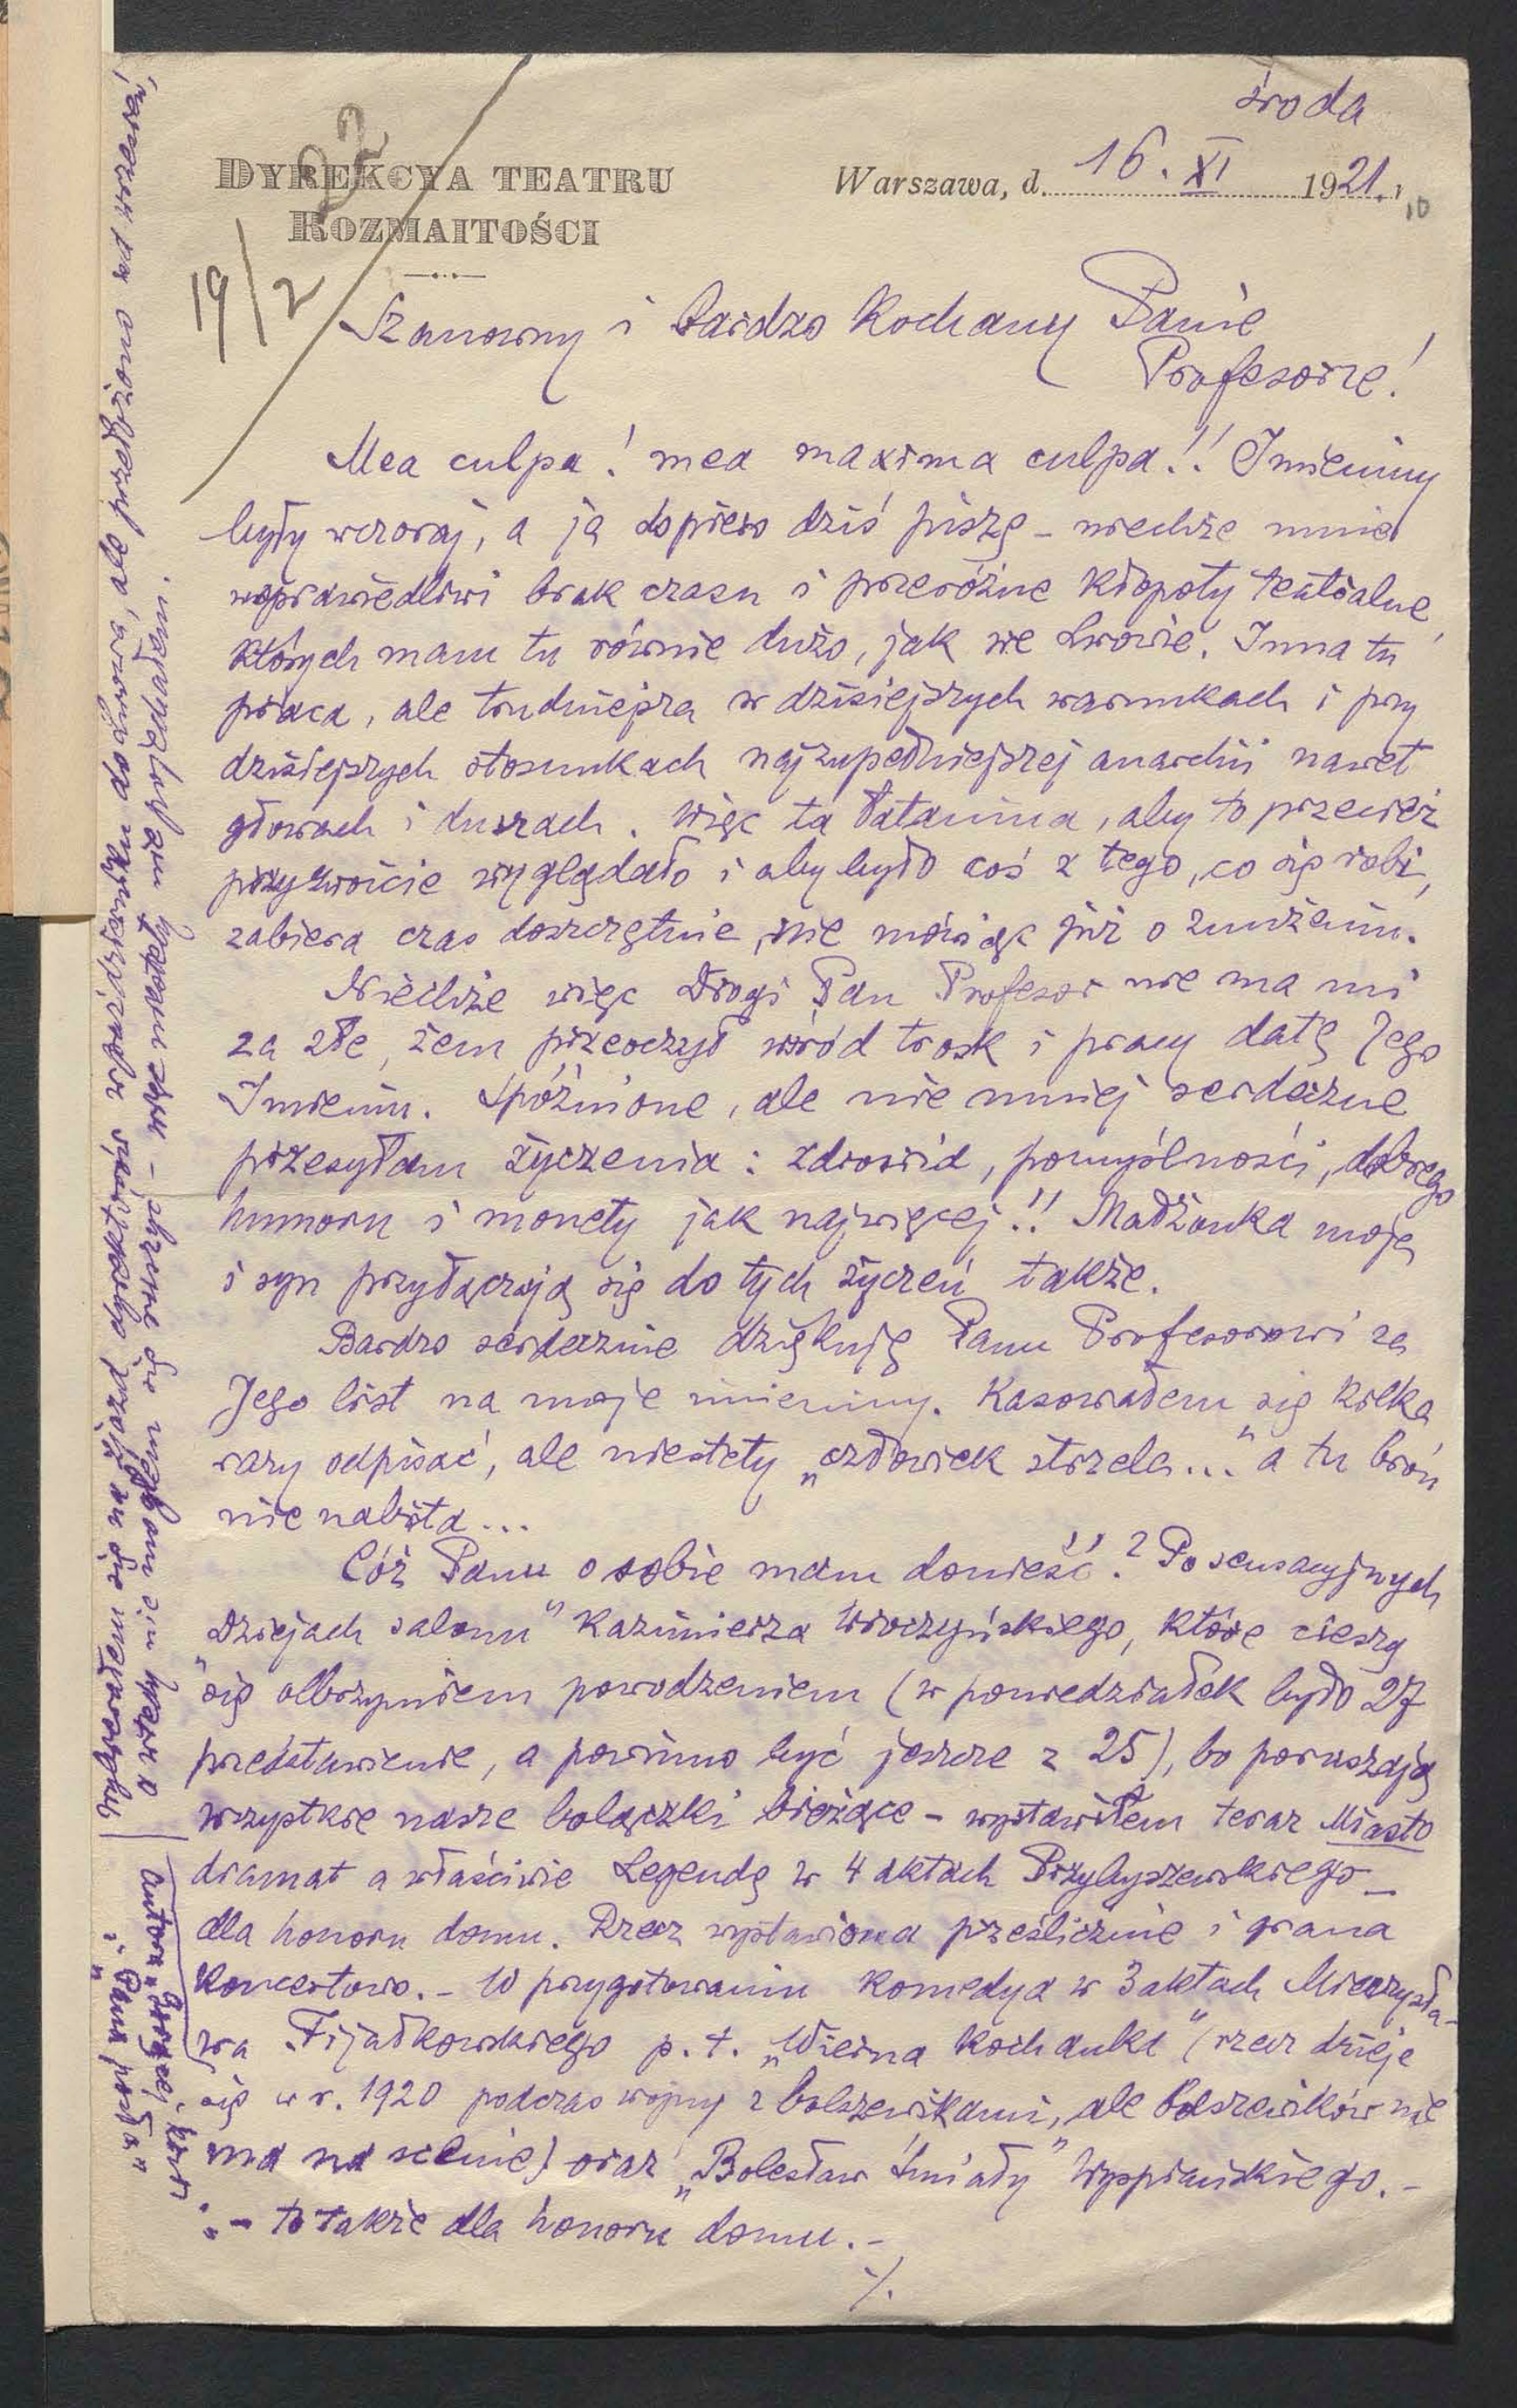 środa
92
DYREKCYA TEATRU
ROZMAITOŚCI
Warszawa, d. 16. XI 1921. r.
19/2
Szanowny i bardzo Kochany Panie
Profesorze!
Mea culpa! mea maxima culpa!! Imieniny
były wczoraj, a ja dopiero dziś piszę – niechże mnie
usprawiedliwi brak czasu i przeróżne kłopoty teatralne,
których mam tu równie dużo, jak we Lwowie. Inna tu
praca, ale trudniejsza w dzisiejszych warunkach i przy
dzisiejszych stosunkach najzupełniejszej anarchii nawet
głowach i duszach. Więc ta łatanina, aby to przecież
przyzwoicie wyglądało i aby było coś z tego, co się robi,
zabiera czas doszczętnie, nie mówiąc już o znużeniu.
Niechże więc Drogi Pan Profesor nie ma mi
za złe, żem przeoczył wśród trosk i pracy datę Jego
Imienin. Spóźnione, ale nie mniej serdeczne
przesyłam życzenia: zdrowia, pomyślności, dobrego
humoru i monety jak najwięcej!! Małżonka moja
i syn przyłączają się do tych życzeń także.
Bardzo serdecznie dziękuję Panu Profesorowi za
Jego list na moje imieniny. Kasowałem się kilka
razy odpisać, ale niestety „człowiek strzela..." a tu broń
nie nabita...
Cóż Panu o sobie mam donieść? Po sensacyjnych
„Dziejach salonu" Kazimierza Wroczyńskiego, które cieszą
się olbrzymiem powodzeniem (w poniedziałek było 27
przedstawienie, a powinno być jeszcze z 25), bo poruszają
wszystkie nasze bolączki bieżące – wystawiłem teraz Miasto
dramat a właściwie Legendę w 4 aktach Przybyszewskiego –
dla honoru domu. Rzecz wystawiona prześlicznie i grana
koncertowo. – W przygotowaniu komedya w 3 aktach Mieczysła-
wa Fijałkowskiego p. t. „Wierna kochanka" (rzecz dzieje
się w r. 1920 podczas wojny z bolszewikami, ale bolszewików nie
ma na scenie) oraz „Bolesław Śmiały" Wyspiańskiego. –
– to także dla honoru domu. –
./.
wybierałem się na zjazd dyrektorów w październiku do Lwowa, ale przełożono na wrzesień,
a wtedy nie mogłem się ruszyć –
autora
„Pana posła"